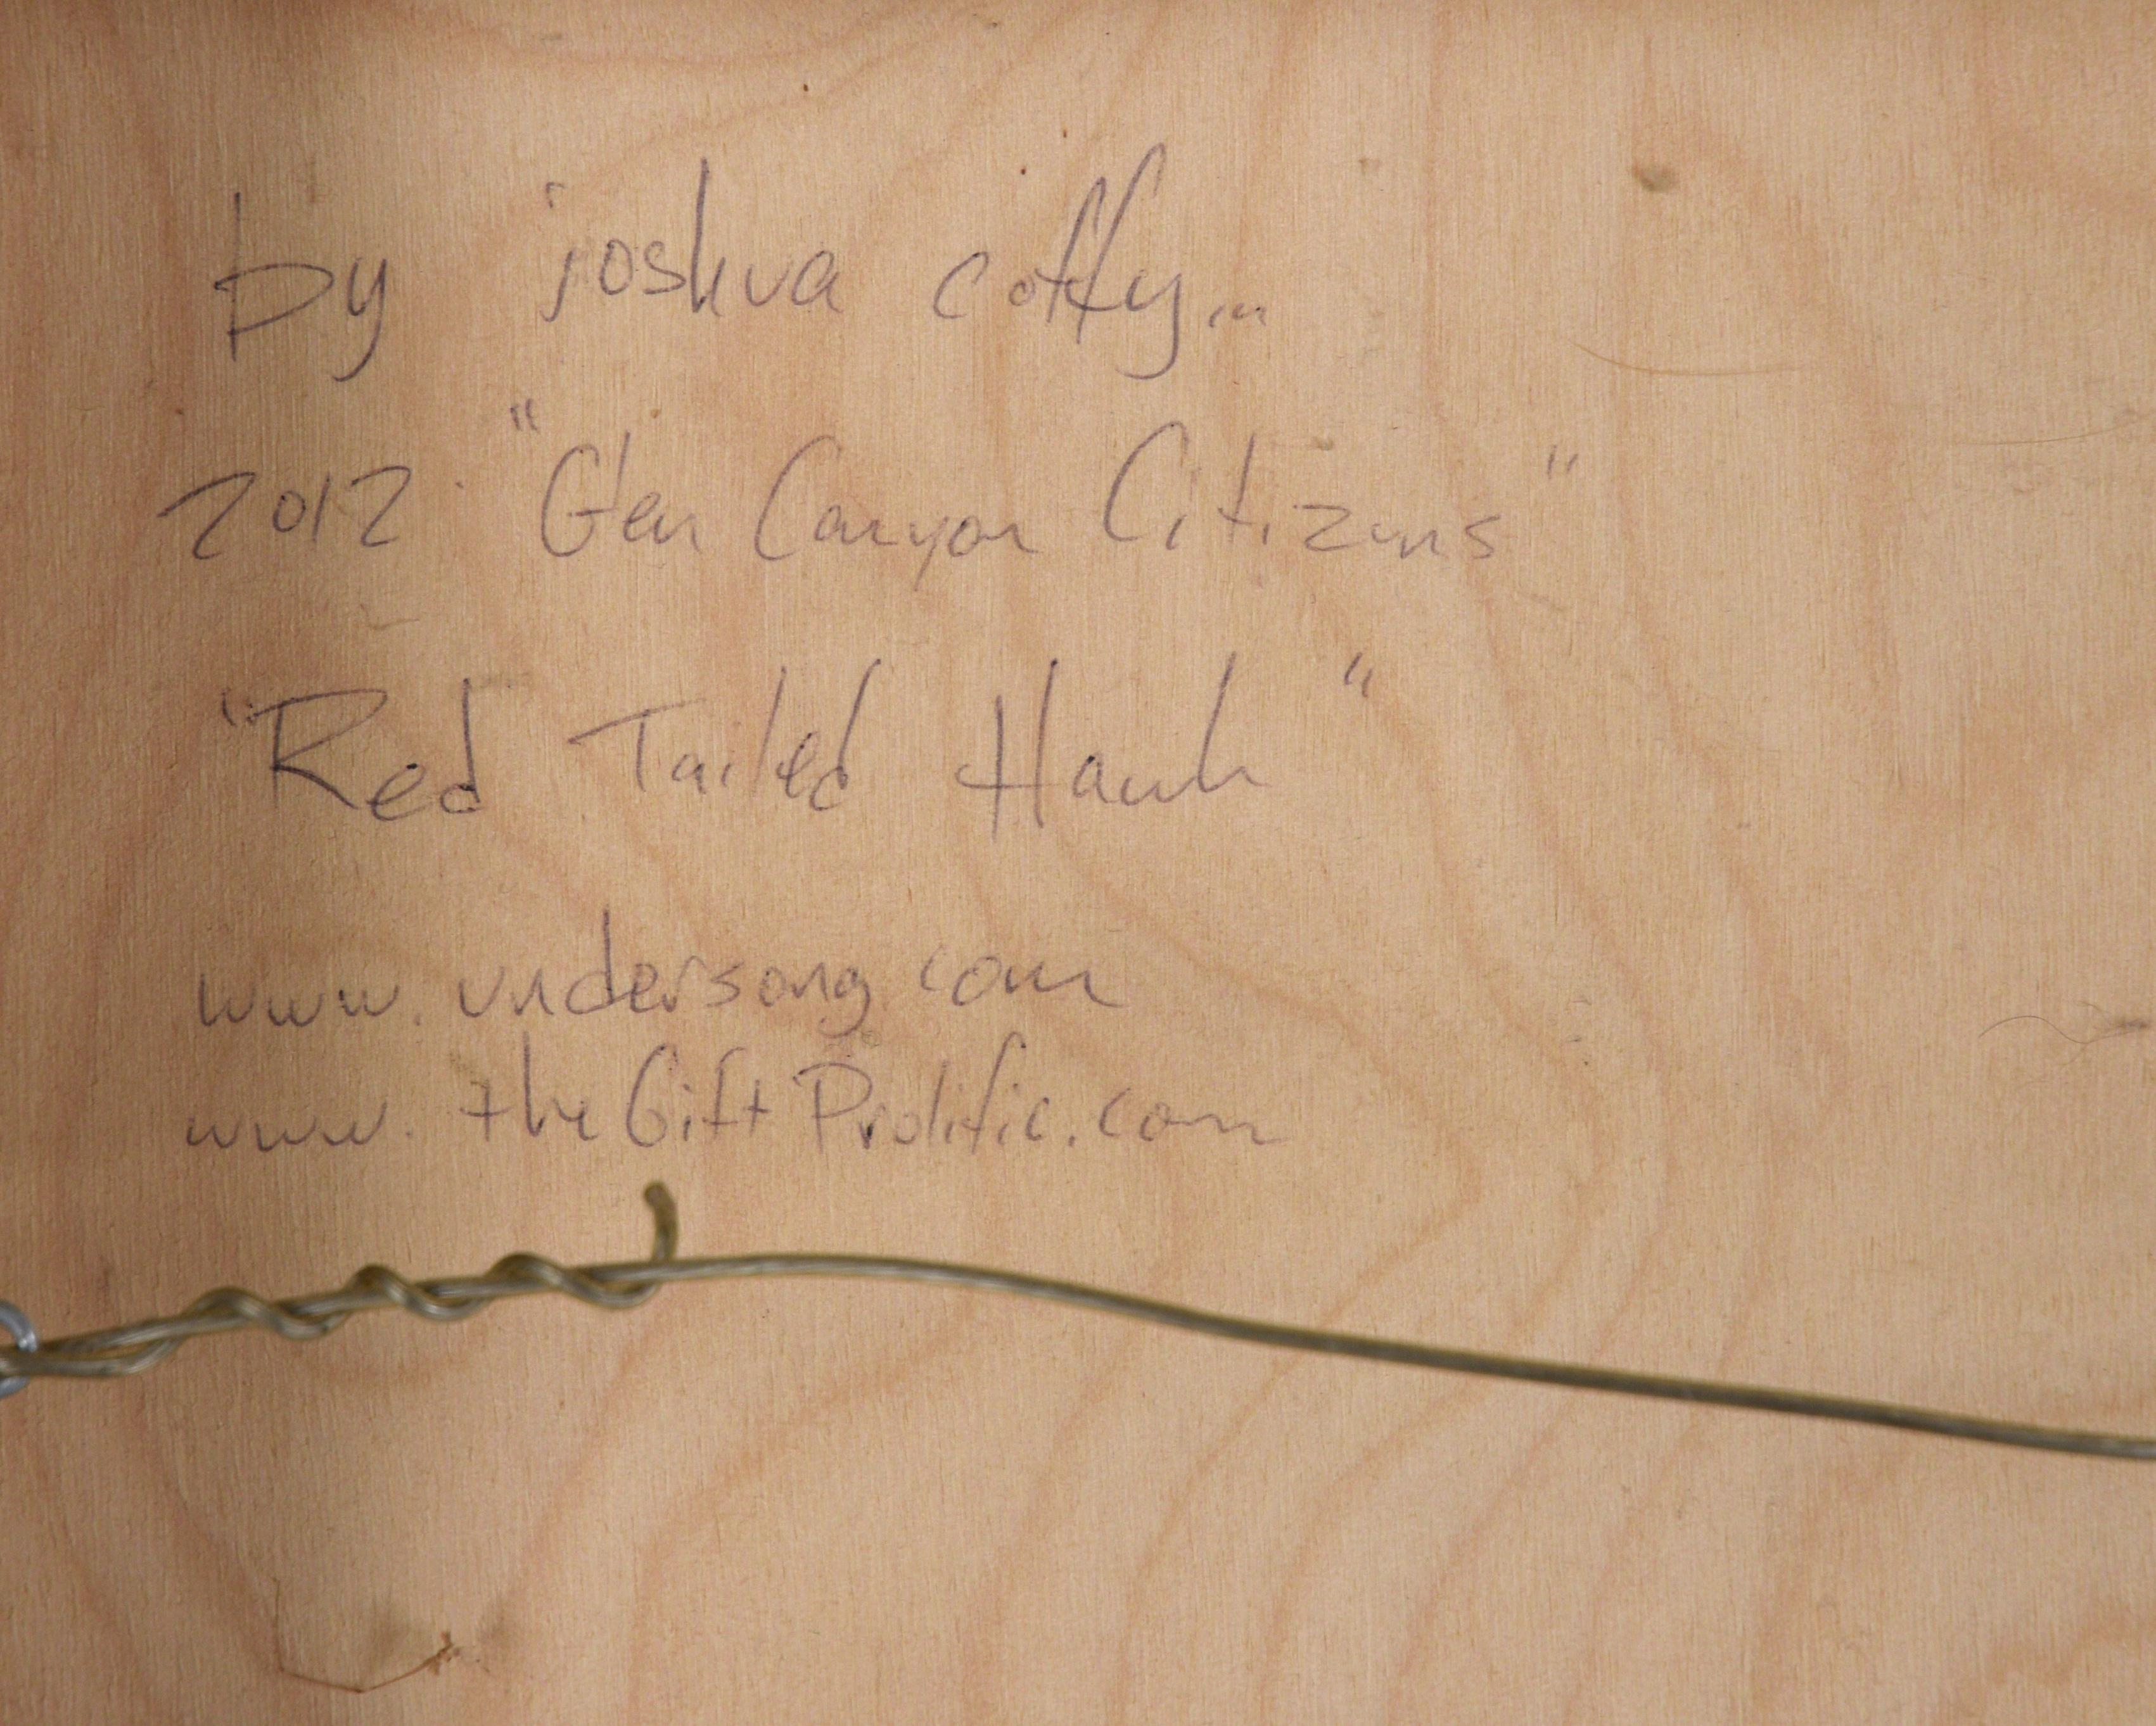 by joshua coffy...
2012 "Glen Canyon Citizens"
"Red Tailed Hawk"
www.undersong.com
www.theGiftProlific.com